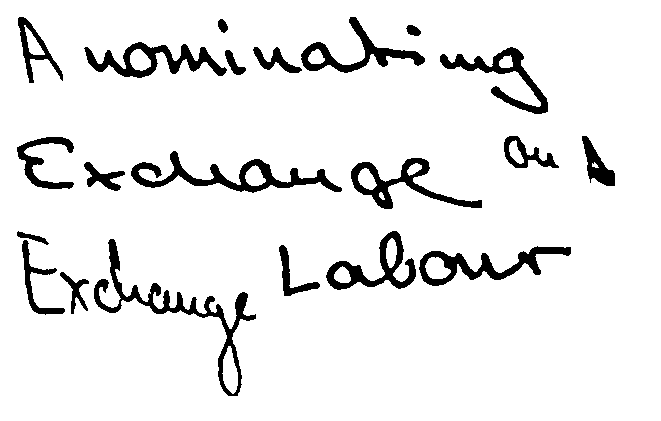 A nominating
Exchange on A
Exchange Labour